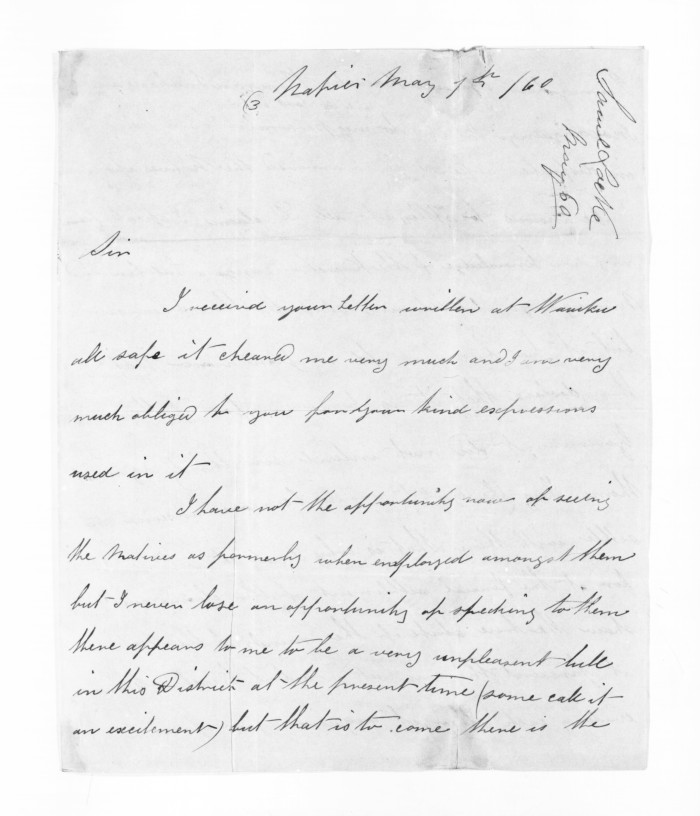 (3 Napier May 7th /60
Samuel Locke
May 60
Sir
I received your letter written at Waiuku
all safe it cheared me very much and I am very
much obliged to you for your kind expressions
used in it
I have not the opportunity now of seeing
the Natives as formerly when employed amongst them
but I never lose an opportunity of speeking to them
there appears to me to be a very unpleasent lull
in this District at the present time (some call it
an excitement) but that is to come there is the